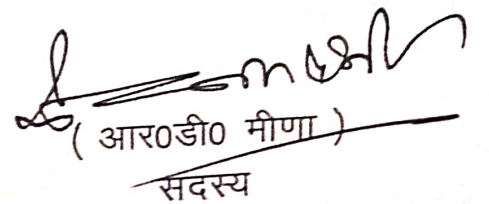 ( आर0डी0 मीणा )
सदस्य